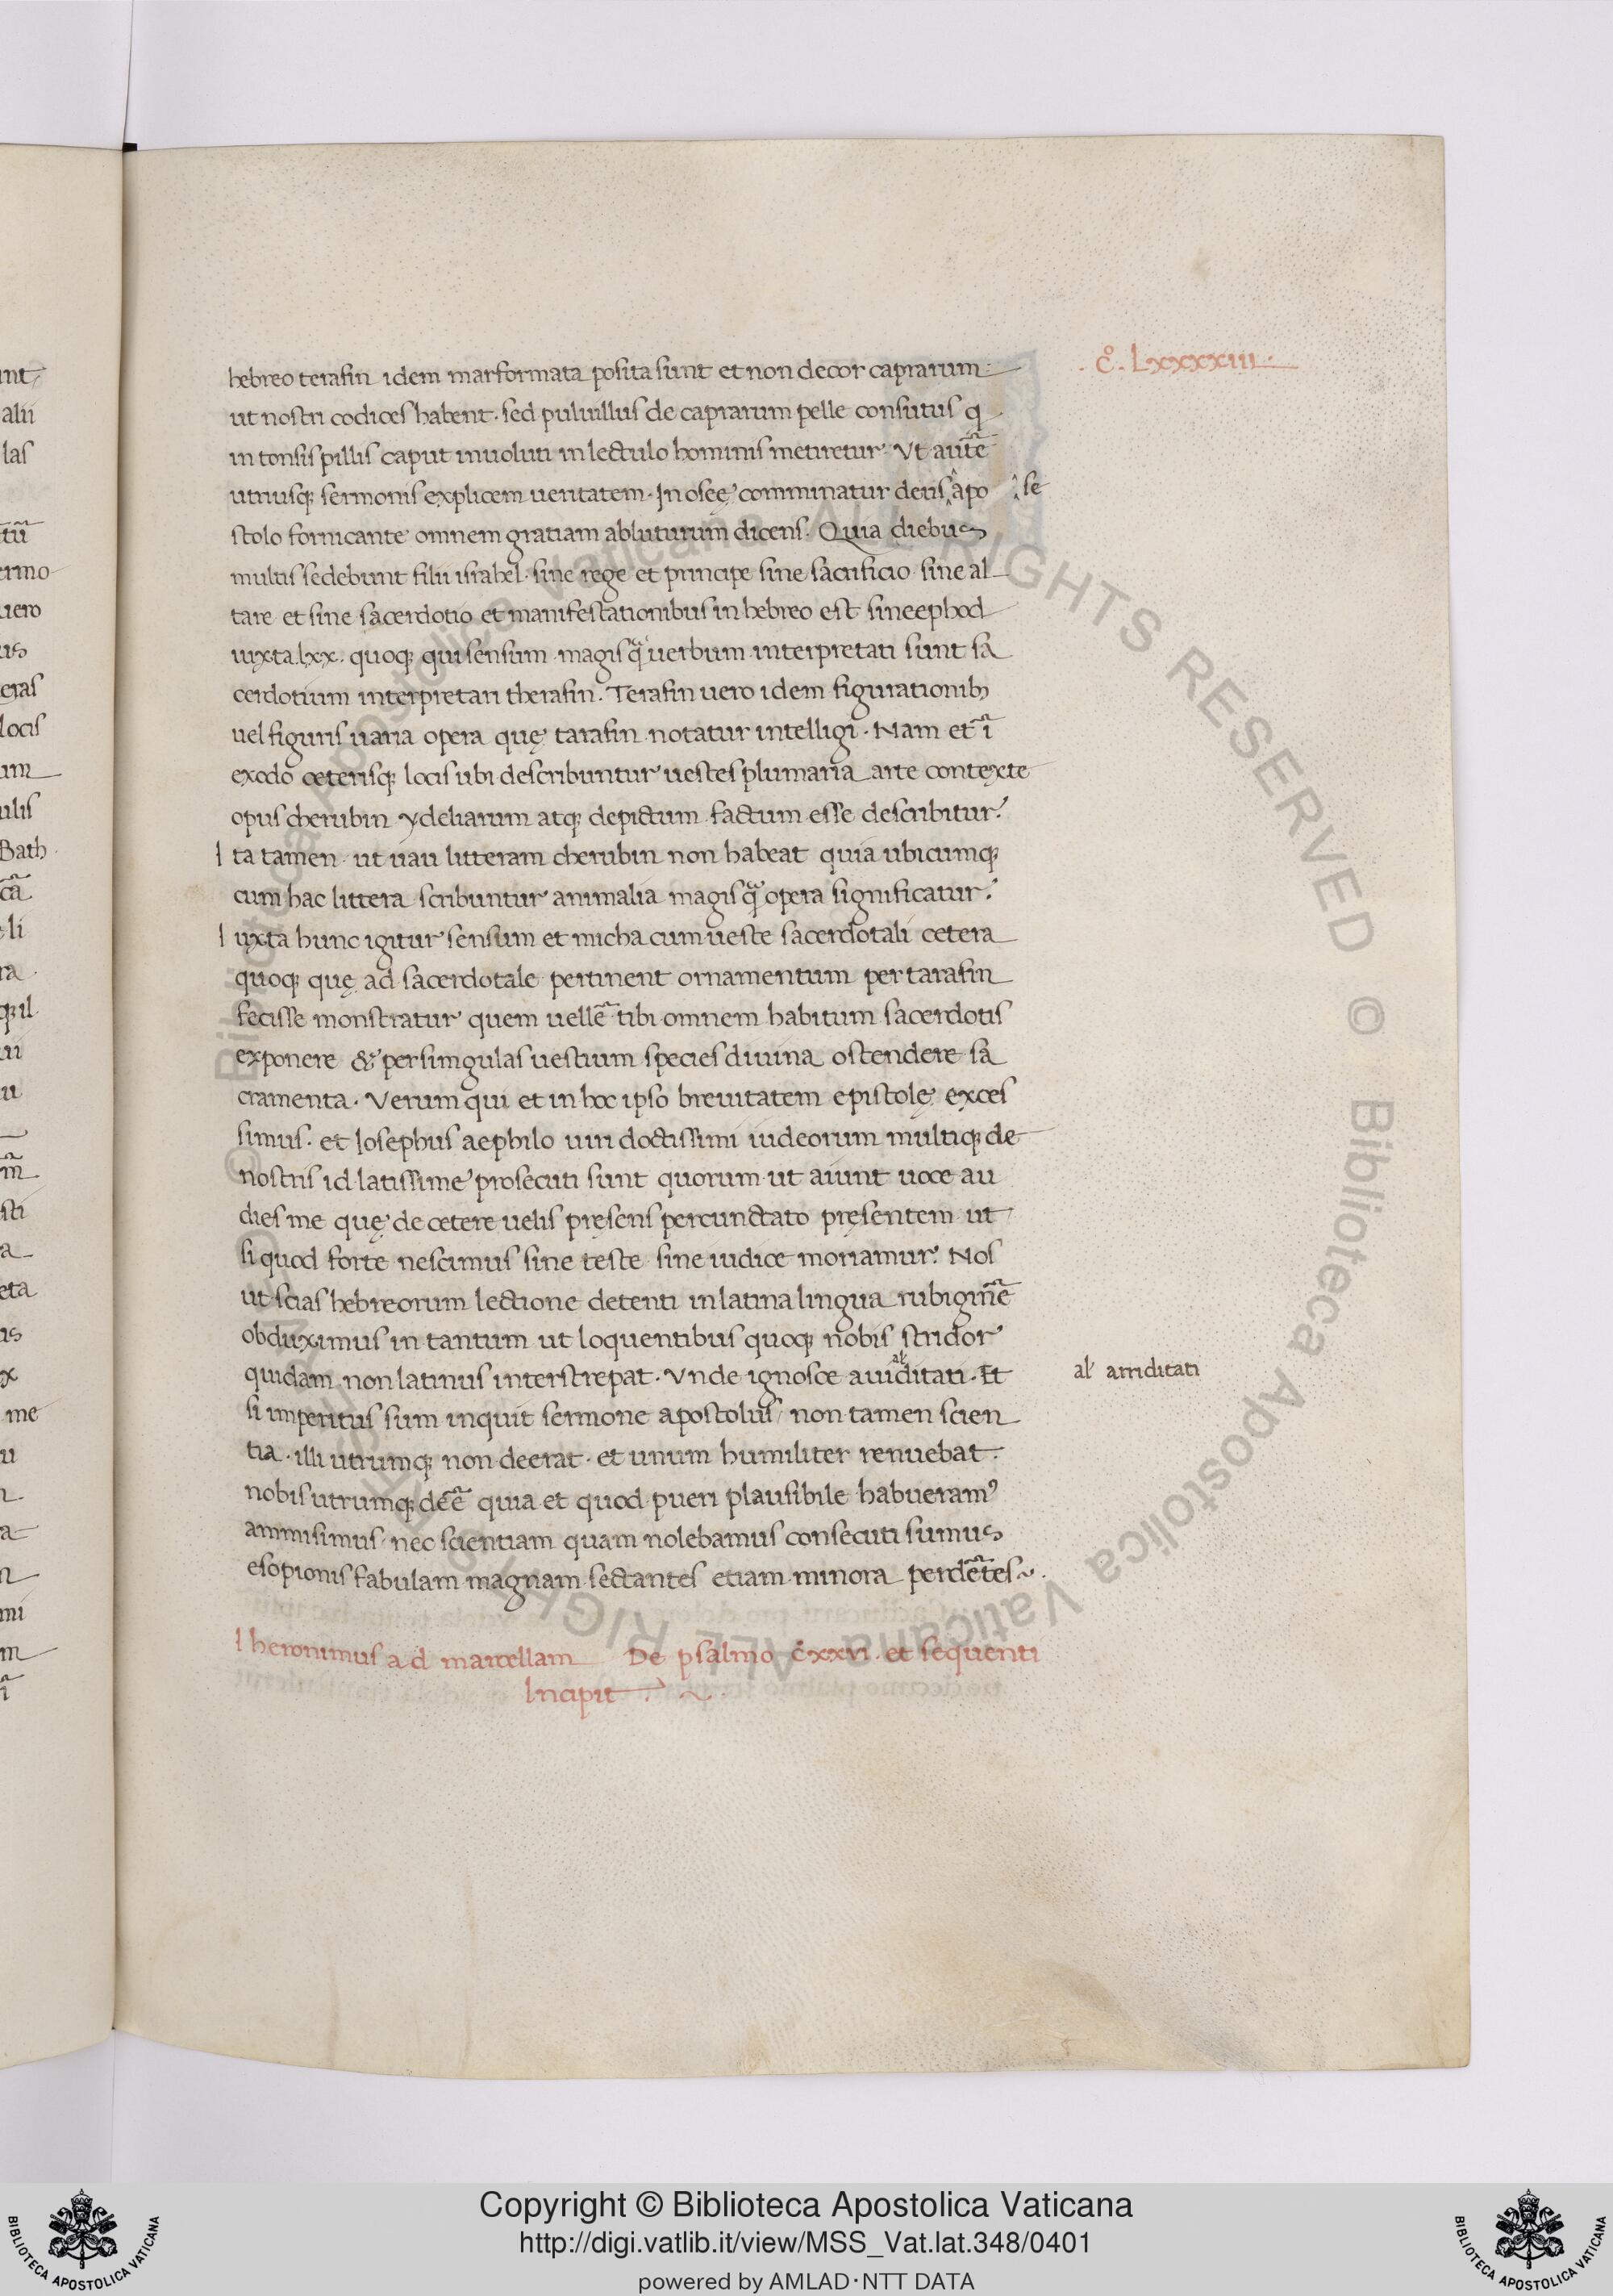 .c̊. Lxxxxiii.
hebreo terafin idem marformata posita sunt et non decor caprarum
ut nostri codices habent. sed puluillus de caprarum pelle consutus q
in tonsis pillis caput inuoluti in lectulo hominis metiretur. Vt aut̃e
utriusq; sermonis explicem ueritatem. In oseę comminatur deus apo
se
stolo fornicante omnem gratiam abluturum dicens. Quia diebus
multis sedebunt filii israhel. sine rege et principe sine sacrificio sine al
tare et sine sacerdotio et manifestationibus in hebreo est sine ephod
iuxta.lxx. quoq; qui sensum magis q̃ uerbum interpretati sunt sa
cerdotium interpretari therafin. Terafin uero idem figurationib;
uel figuris uaria opera quę tarafin notatur intelligi. Nam et ĩ
exodo ceterisq; locis ubi describuntur uestes plumaria arte contexte
opus cherubin ydeliarum atq; depictum factum esse describitur.
Ita tamen ut uau litteram cherubin non habeat quia ubicumq;
cum hac littera scribuntur animalia magis q̃ opera significatur.
Iuxta hunc igitur sensum et micha cum ueste sacerdotali cetera
quoq; quę ad sacerdotale pertinent ornamentum per tarafin
fecisse monstratur quem uellẽ tibi omnem habitum sacerdotis
exponere & per singulas uestium species diuina ostendere sa
cramenta. Verum qui et in hoc ipso breuitatem epistolę exces
simus. et Iosephus aephilo uiri doctissimi iudeorum multiq; de
nostris id latissime prosecuti sunt quorum ut aiunt uoce au
dies me quę de cetere uelis pręsens percunctato pręsentem ut
si quod forte nescimus sine teste sine iudice moriamur. Nos
ut scias hebreorum lectione detenti in latina lingua rubiginẽ
obduximus in tantum ut loquentibus quoq; nobis stridor
quidam non latinus interstrepat. Vnde ignosce auiditati. Et
al'
al' arriditati
si imperitus sum inquit sermone apostolus non tamen scien
tia. illi utrumq; non deerat. et unum humiliter renuebat.
nobis utrumq; deẽ quia et quod pueri plausibile habueram⁹
ammisimus nec scientiam quam nolebamus consecuti sumus
esopionis fabulam magnam sectantes etiam minora perdẽtes.
Iheronimus ad marcellam De psalmo c̊xxvi. et sequenti
Incipit
Copyright © Biblioteca Apostolica Vaticana
http://digi.vatlib.it/view/MSS_Vat.lat.348/0401
powered by AMLAD·NTT DATA